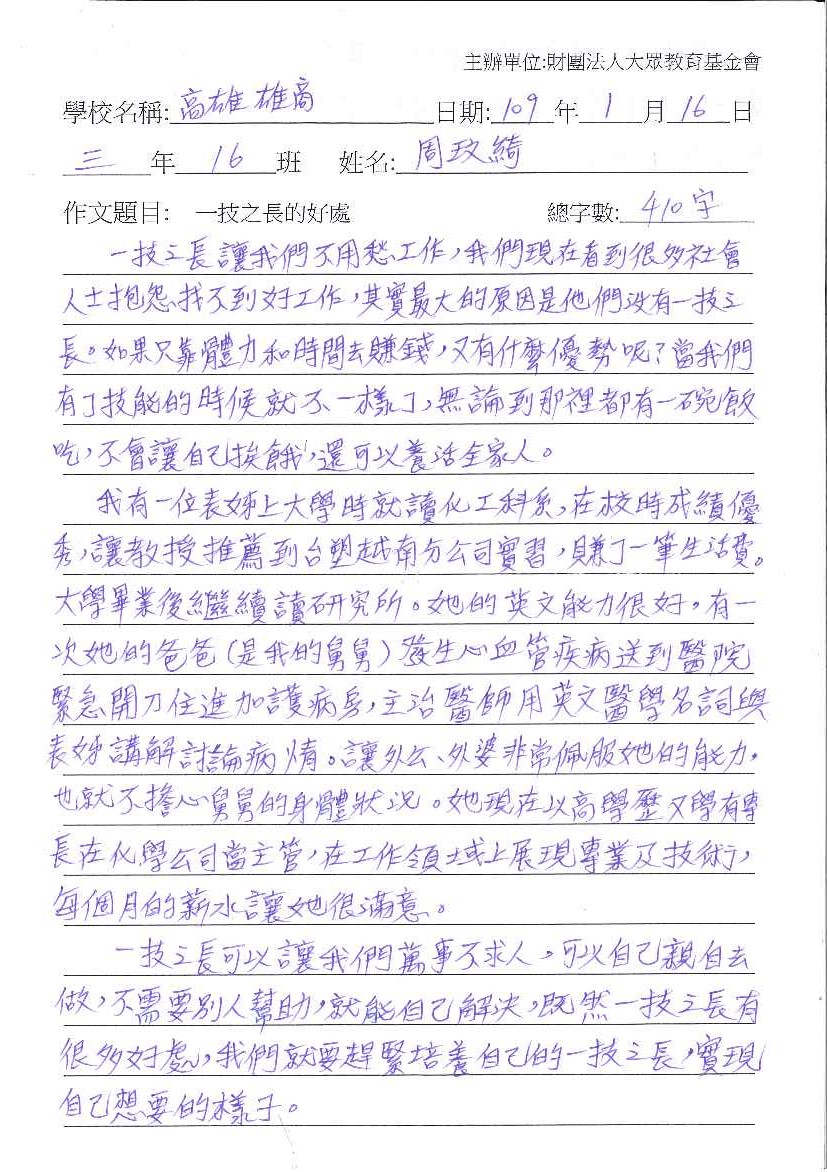 主辦單位:財團法人大眾教育基金會
學校名稱:高雄雄商 日期:109年1月16日
三年16班 姓名:周玟綺
作文題目: 一技之長的好處 總字數:410字
一技之長讓我們不用愁工作,我們現在看到很多社會
人士抱怨找不到好工作,其實最大的原因是他們沒有一技之
長。如果只靠體力和時間去賺錢,又有什麼優勢呢?當我們
有了技能的時候就不一樣了,無論到那裡都有一碗飯
吃,不會讓自己挨餓,還可以養活全家人。
我有一位表姊上大學時就讀化工科系,在校時成績優
秀,讓教授推薦到台塑越南分公司實習,賺了一筆生活費。
大學畢業後繼續讀研究所。她的英文能力很好,有一
次她的爸爸(是我的舅舅)發生心血管疾病送到醫院
緊急開刀住進加護病房,主治醫師用英文醫學名詞與
表姊講解討論病情。讓外公、外婆非常佩服她的能力,
也就不擔心舅舅的身體狀況。她現在以高學歷又學有專
長在化學公司當主管,在工作領域上展現專業及技術,
每個月的薪水讓她很滿意。
一技之長可以讓我們萬事不求人,可以自己親自去
做,不需要別人幫助,就能自己解決,既然一技之長有
很多好處,我們就要趕緊培養自己的一技之長,實現
自己想要的樣子。